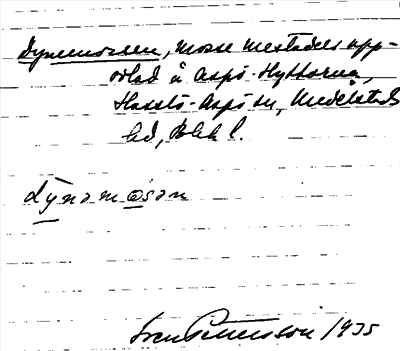 Dynemossen, mosse mestadels upp-
odlad å Aspö-Hyttorna,
Hasslö-Aspö sn, Medelstads
hd, Blek l.
dynəmåsən
Sven Pettersson 1935